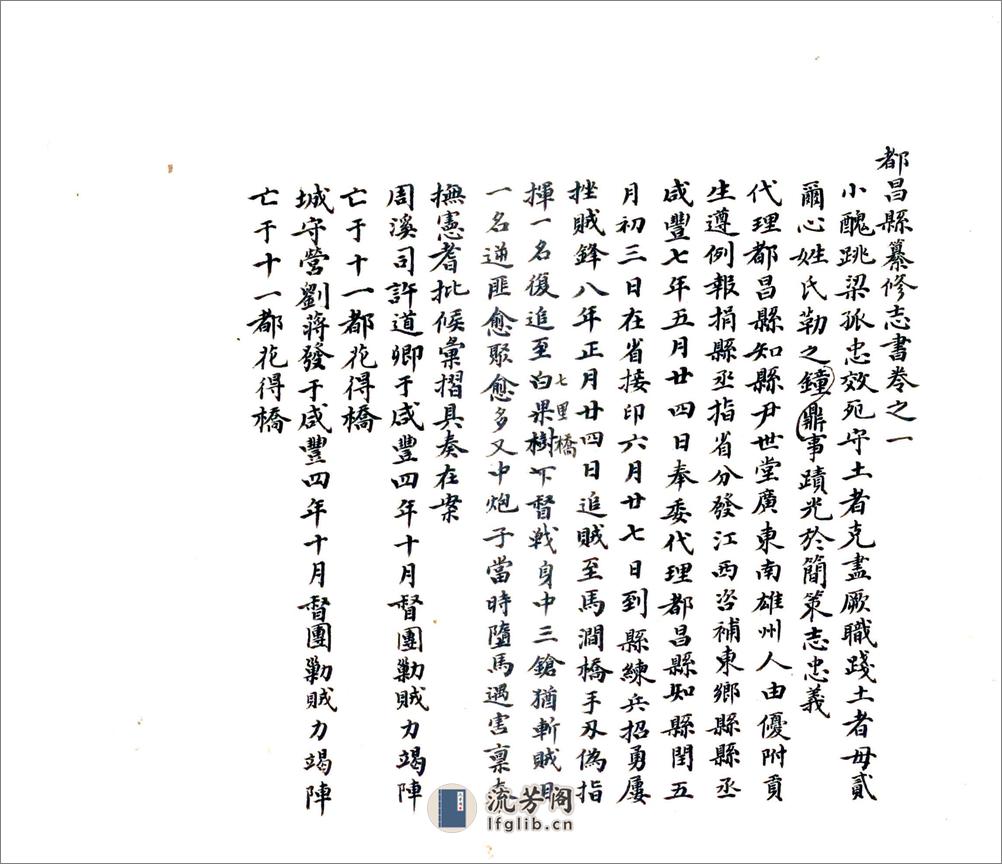 都昌縣纂修志書卷之一
小醜跳梁孤忠效死守土者克盡厥職踐土者毋貳
爾心姓氏勒之鐘鼎事蹟光於簡策志忠義
代理都昌縣知縣尹世堂廣東南雄州人由優附貢
生遵例報捐縣丞指省分發江西咨補東鄉縣縣丞
咸豐七年五月廿四日奉委代理都昌縣知縣閏五
月初三日在省接印六月廿七日到縣練兵招勇屢
挫賊鋒八年正月廿四日追賊至馬澗橋手刃偽指
七里橋
揮一名復追至白果樹下督戰身中三鎗猶斬賊目
一名逆匪愈聚愈多又中炮子當時墮馬遇害稟奉
撫憲耆批候彙摺具奏在案
周溪司許道卿于咸豐四年十月督團勦賊力竭陣
亡于十一都花得橋
城守營劉蔣發于咸豐四年十月督團勦賊力竭陣
亡于十一都花得橋
流芳阁
lfglib.cn